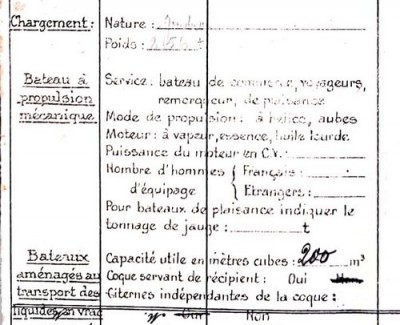 Chargement: Nature:
Poids: t
Bateau à propulsion mécanique
Service: bateau de commerce, voyageurs,
remorqueur, de plaisance
Mode de propulsion: à hélice, aubes
Moteur: à vapeur, essence, huile lourde
Puissance du moteur en C.V.:
Nombre d'hommes { Français:
d'équipage { Etrangers:
Pour bateaux de plaisance indiquer le
tonnage de jauge: t
Bateaux Capacité utile en mètres cubes: 200 m³
aménagés au Coque servant de récipient: Oui
transport des Citernes indépendantes de la coque:
liquides en vrac Oui Non